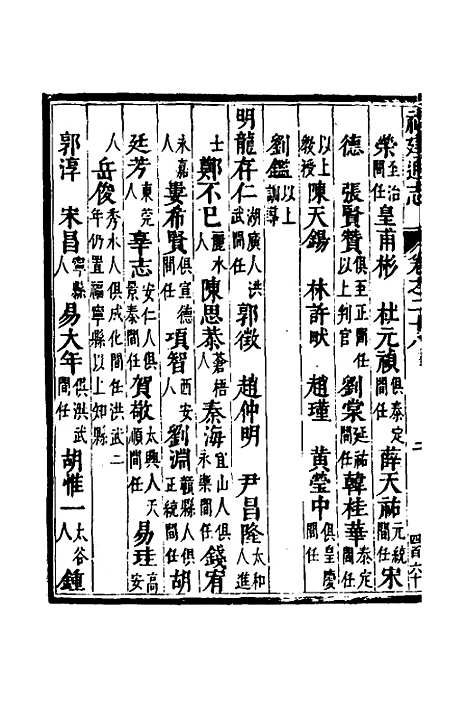 福建通志 卷之二十六 二 四百六十
榮至治間任 皇甫彬 杜元禎俱泰定間任 薛天祐元統間任 宋
德 張賢贊俱至正間任以上判官 劉棠延祐間任 韓桂華泰定間任
以上教授 陳天錫 林許畎 趙瑾 黃瑩中俱皇慶間任
劉鑑以上訓導
明龍存仁湖廣人洪武間任 郭徵 趙仲明 尹昌隆太和人進
士 鄭不已麗水人 陳思恭蒼梧人 秦海宜山人俱永樂間任 錢宥
永嘉人 婁希賢俱宣德間任 項智西安人 劉淵贛縣人俱正統間任 胡
廷芳東莞人 辜志安仁人俱景泰間任 賀敬太興人天順間任 易珪高安
人 岳俊秀水人俱成化間任洪武二年仍置福寧縣以上知縣
郭淳 宋昌寧縣人 易大年俱洪武間任 胡惟一太谷人 鍾